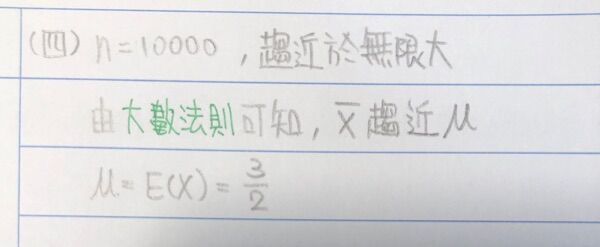 (四) n=10000，趨近於無限大
由大數法則可知，X̄ 趨近 μ
μ=E(X)=3/2